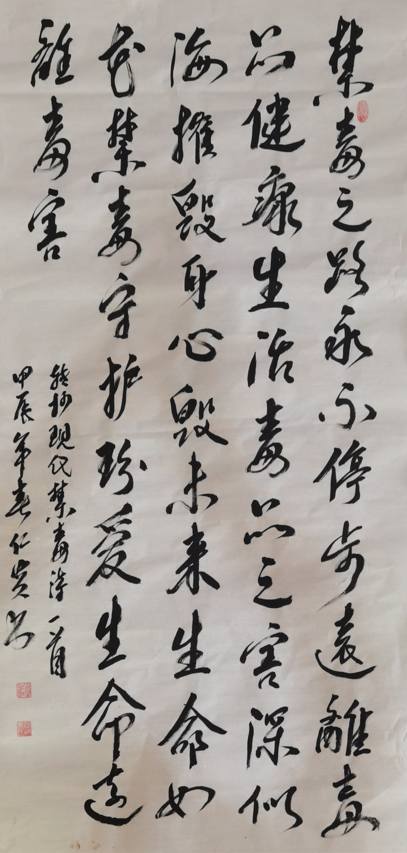 禁毒之路永不停步远離毒
品健康生活毒品之害深似
海摧毁身心毁未来生命如
花禁毒守护珍爱生命远
離毒害
转抄现代禁毒诗一首
甲辰年春仁贵书